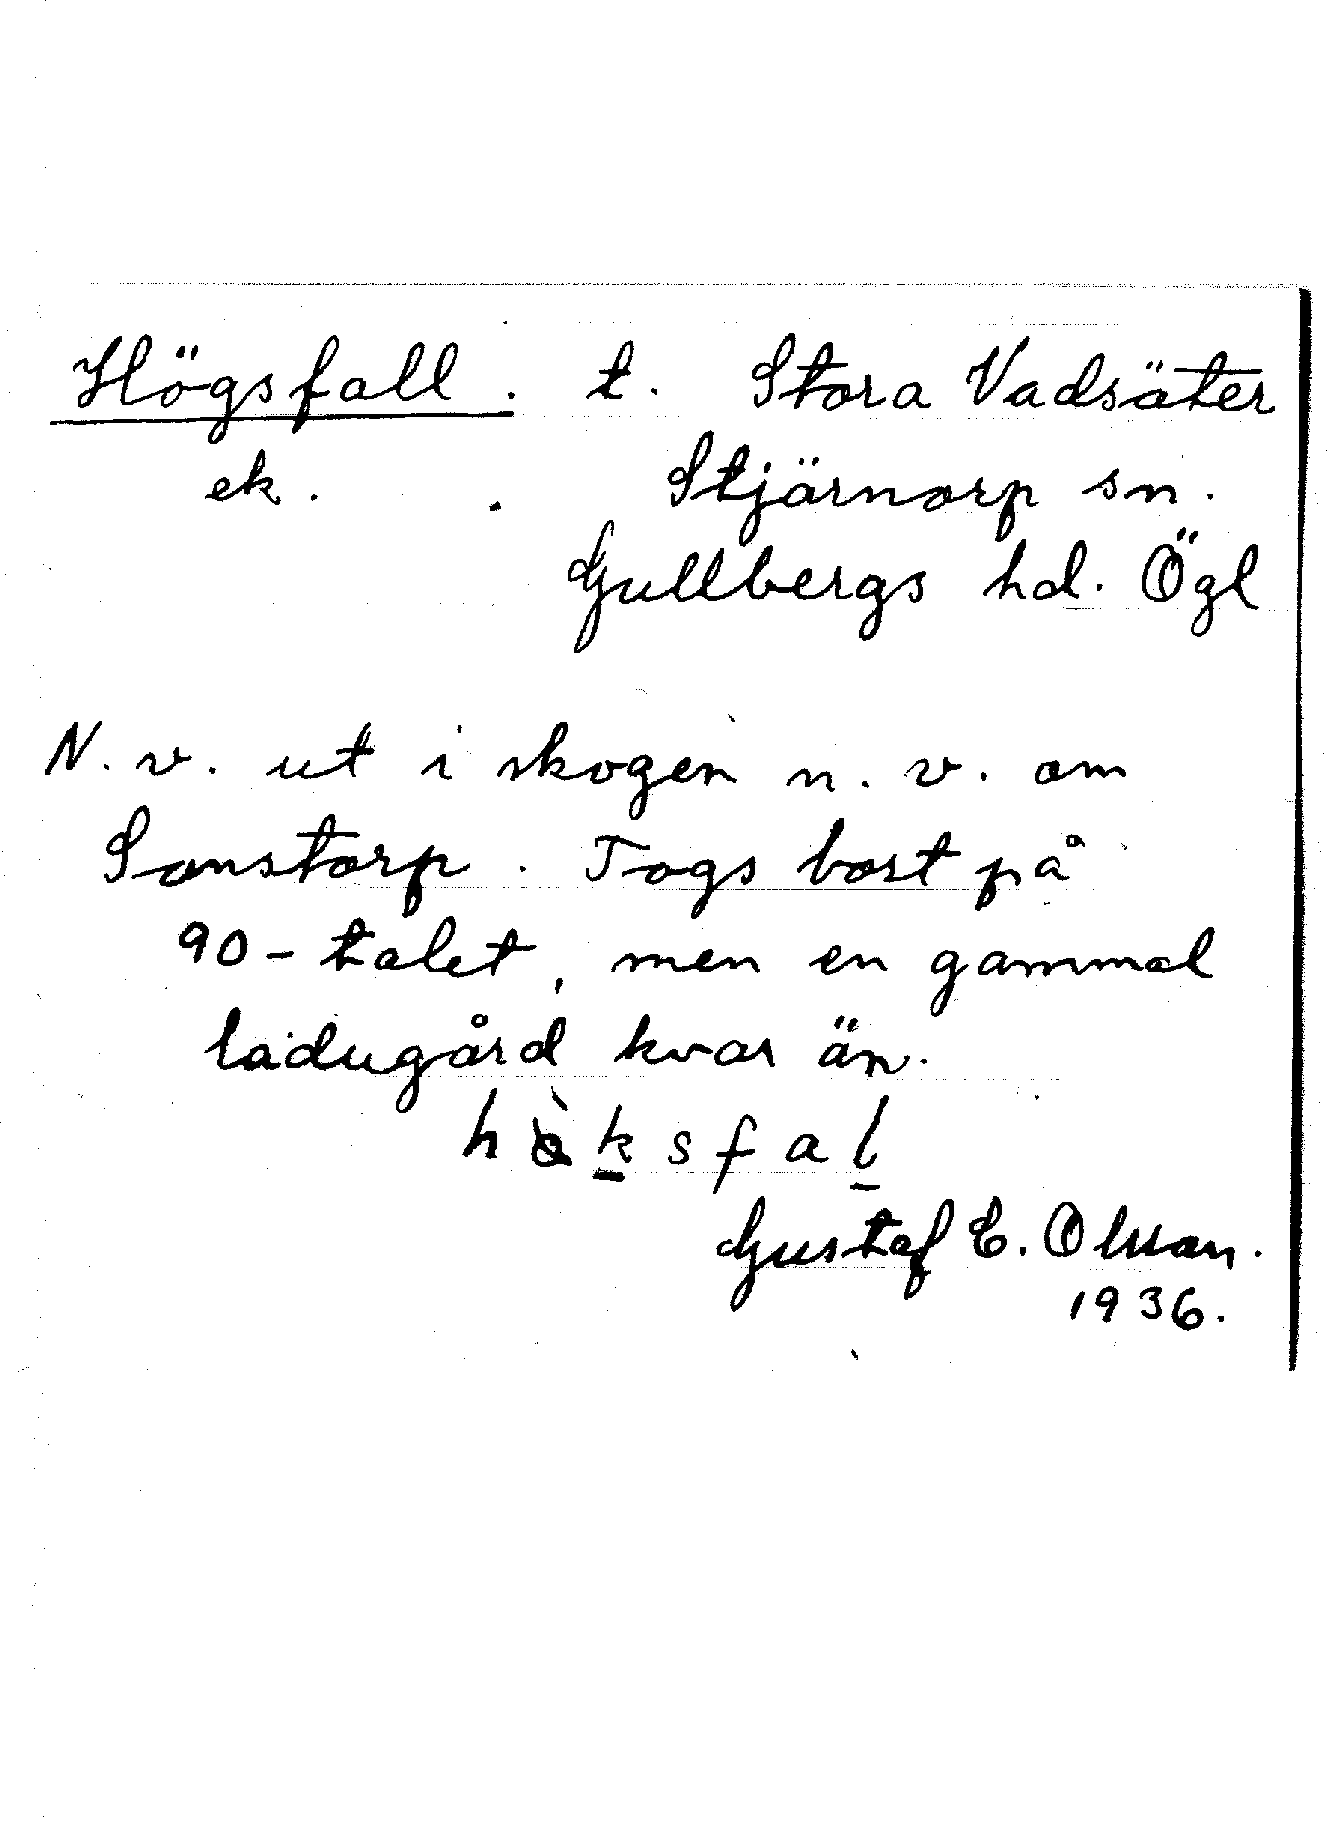 Högsfall. t. Stora Vadsäter
ek. Stjärnorp sn.
Gullbergs hd. Ögl
N. v. ut i skogen n. v. om
Sonstorp. Togs bort på
90-talet, men en gammal
ladugård kvar än.
hòksfal
Gustaf E. Olsson.
1936.